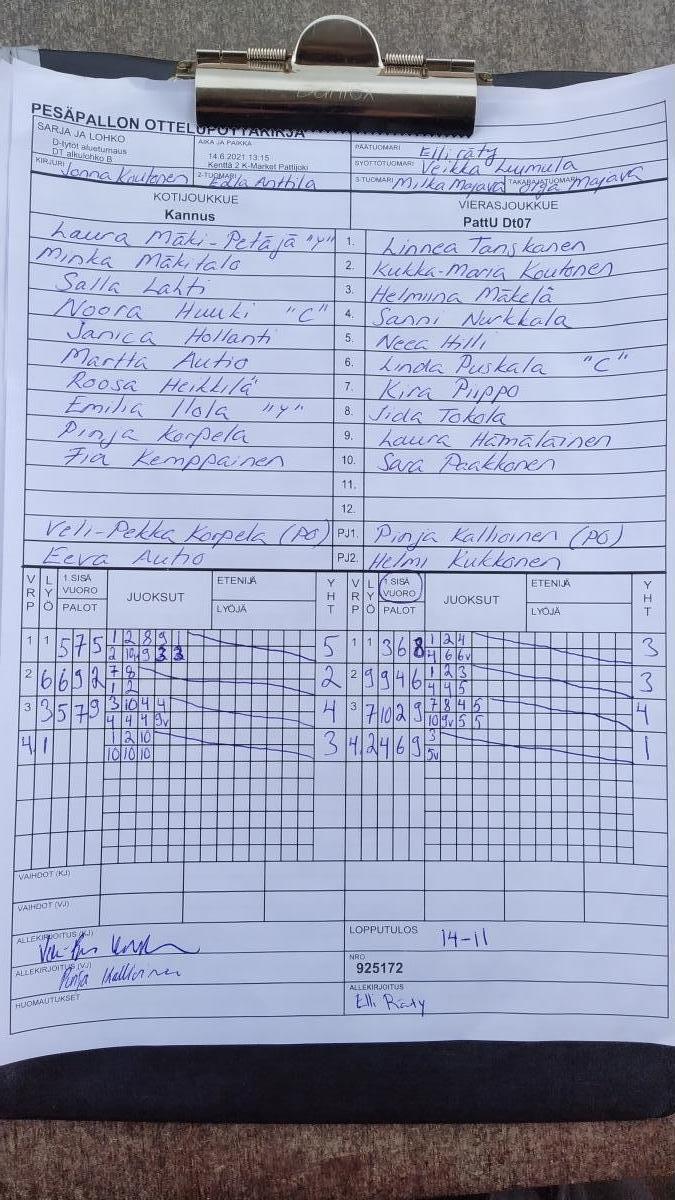 PESÄPALLON OTTELUPÖYTÄKIRJA
SARJA JA LOHKO
D-tytöt alueturnaus
DT alkulohko B
AIKA JA PAIKKA
14.6.2021 13:15
Kenttä 2 K-Market Pattijoki
PÄÄTUOMARI Elli räty
SYÖTTÖTUOMARI Veikka Luumula
KIRJURI Jonna Koutonen 2-TUOMARI Edla Anttila 3-TUOMARI Milka Majava TAKARAJATUOMARI Majava
KOTIJOUKKUE VIERASJOUKKUE
Kannus PattU Dt07
Laura Mäki-Petäjä "Y" 1. Linnea Tanskanen
Minka Mäkitalo 2. Kukka-Maria Koutonen
Salla Lahti 3. Helmiina Mäkelä
Noora Huuki "C" 4. Sanni Nurkkala
Janica Hollanti 5. Neea Hilli
Martta Autio 6. Linda Puskala "C"
Roosa Heikkilä 7. Kira Piippo
Emilia Ilola "Y" 8. Iida Tokola
Pinja Korpela 9. Laura Hämäläinen
Fia Kemppainen 10. Sara Paakkonen
11.
12.
Veli-Pekka Korpela (PG) PJ1. Pinja Kallioinen (PG)
Eeva Autio PJ2. Helmi Kukkonen
VRP LYÖ 1.SISÄ VUORO PALOT JUOKSUT ETENIJÄ LYÖJÄ YHT VRP LYÖ 1.SISÄ VUORO PALOT JUOKSUT ETENIJÄ LYÖJÄ YHT
1 1 5 7 5 1 2 8 9 1 5 1 1 3 6 8 1 2 4 3
2 10v 9 3 3 4 6 6v
2 6 6 9 2 7 8 2 2 9 9 4 6 1 2 3 3
1 2 4 4 5
3 3 5 7 9 3 10 4 4 4 3 7 10 2 9 7 8 4 5 4
4 4 4 9v 10 9v 5 5
4. 1 1 2 10 3 4. 2 4 6 9 3 1
10 10 10 5v
VAIHDOT (KJ)
VAIHDOT (VJ)
ALLEKIRJOITUS (KJ)
LOPPUTULOS 14-11
ALLEKIRJOITUS (VJ) Pinja Kallioinen
NRO 925172
HUOMAUTUKSET
ALLEKIRJOITUS Elli Räty